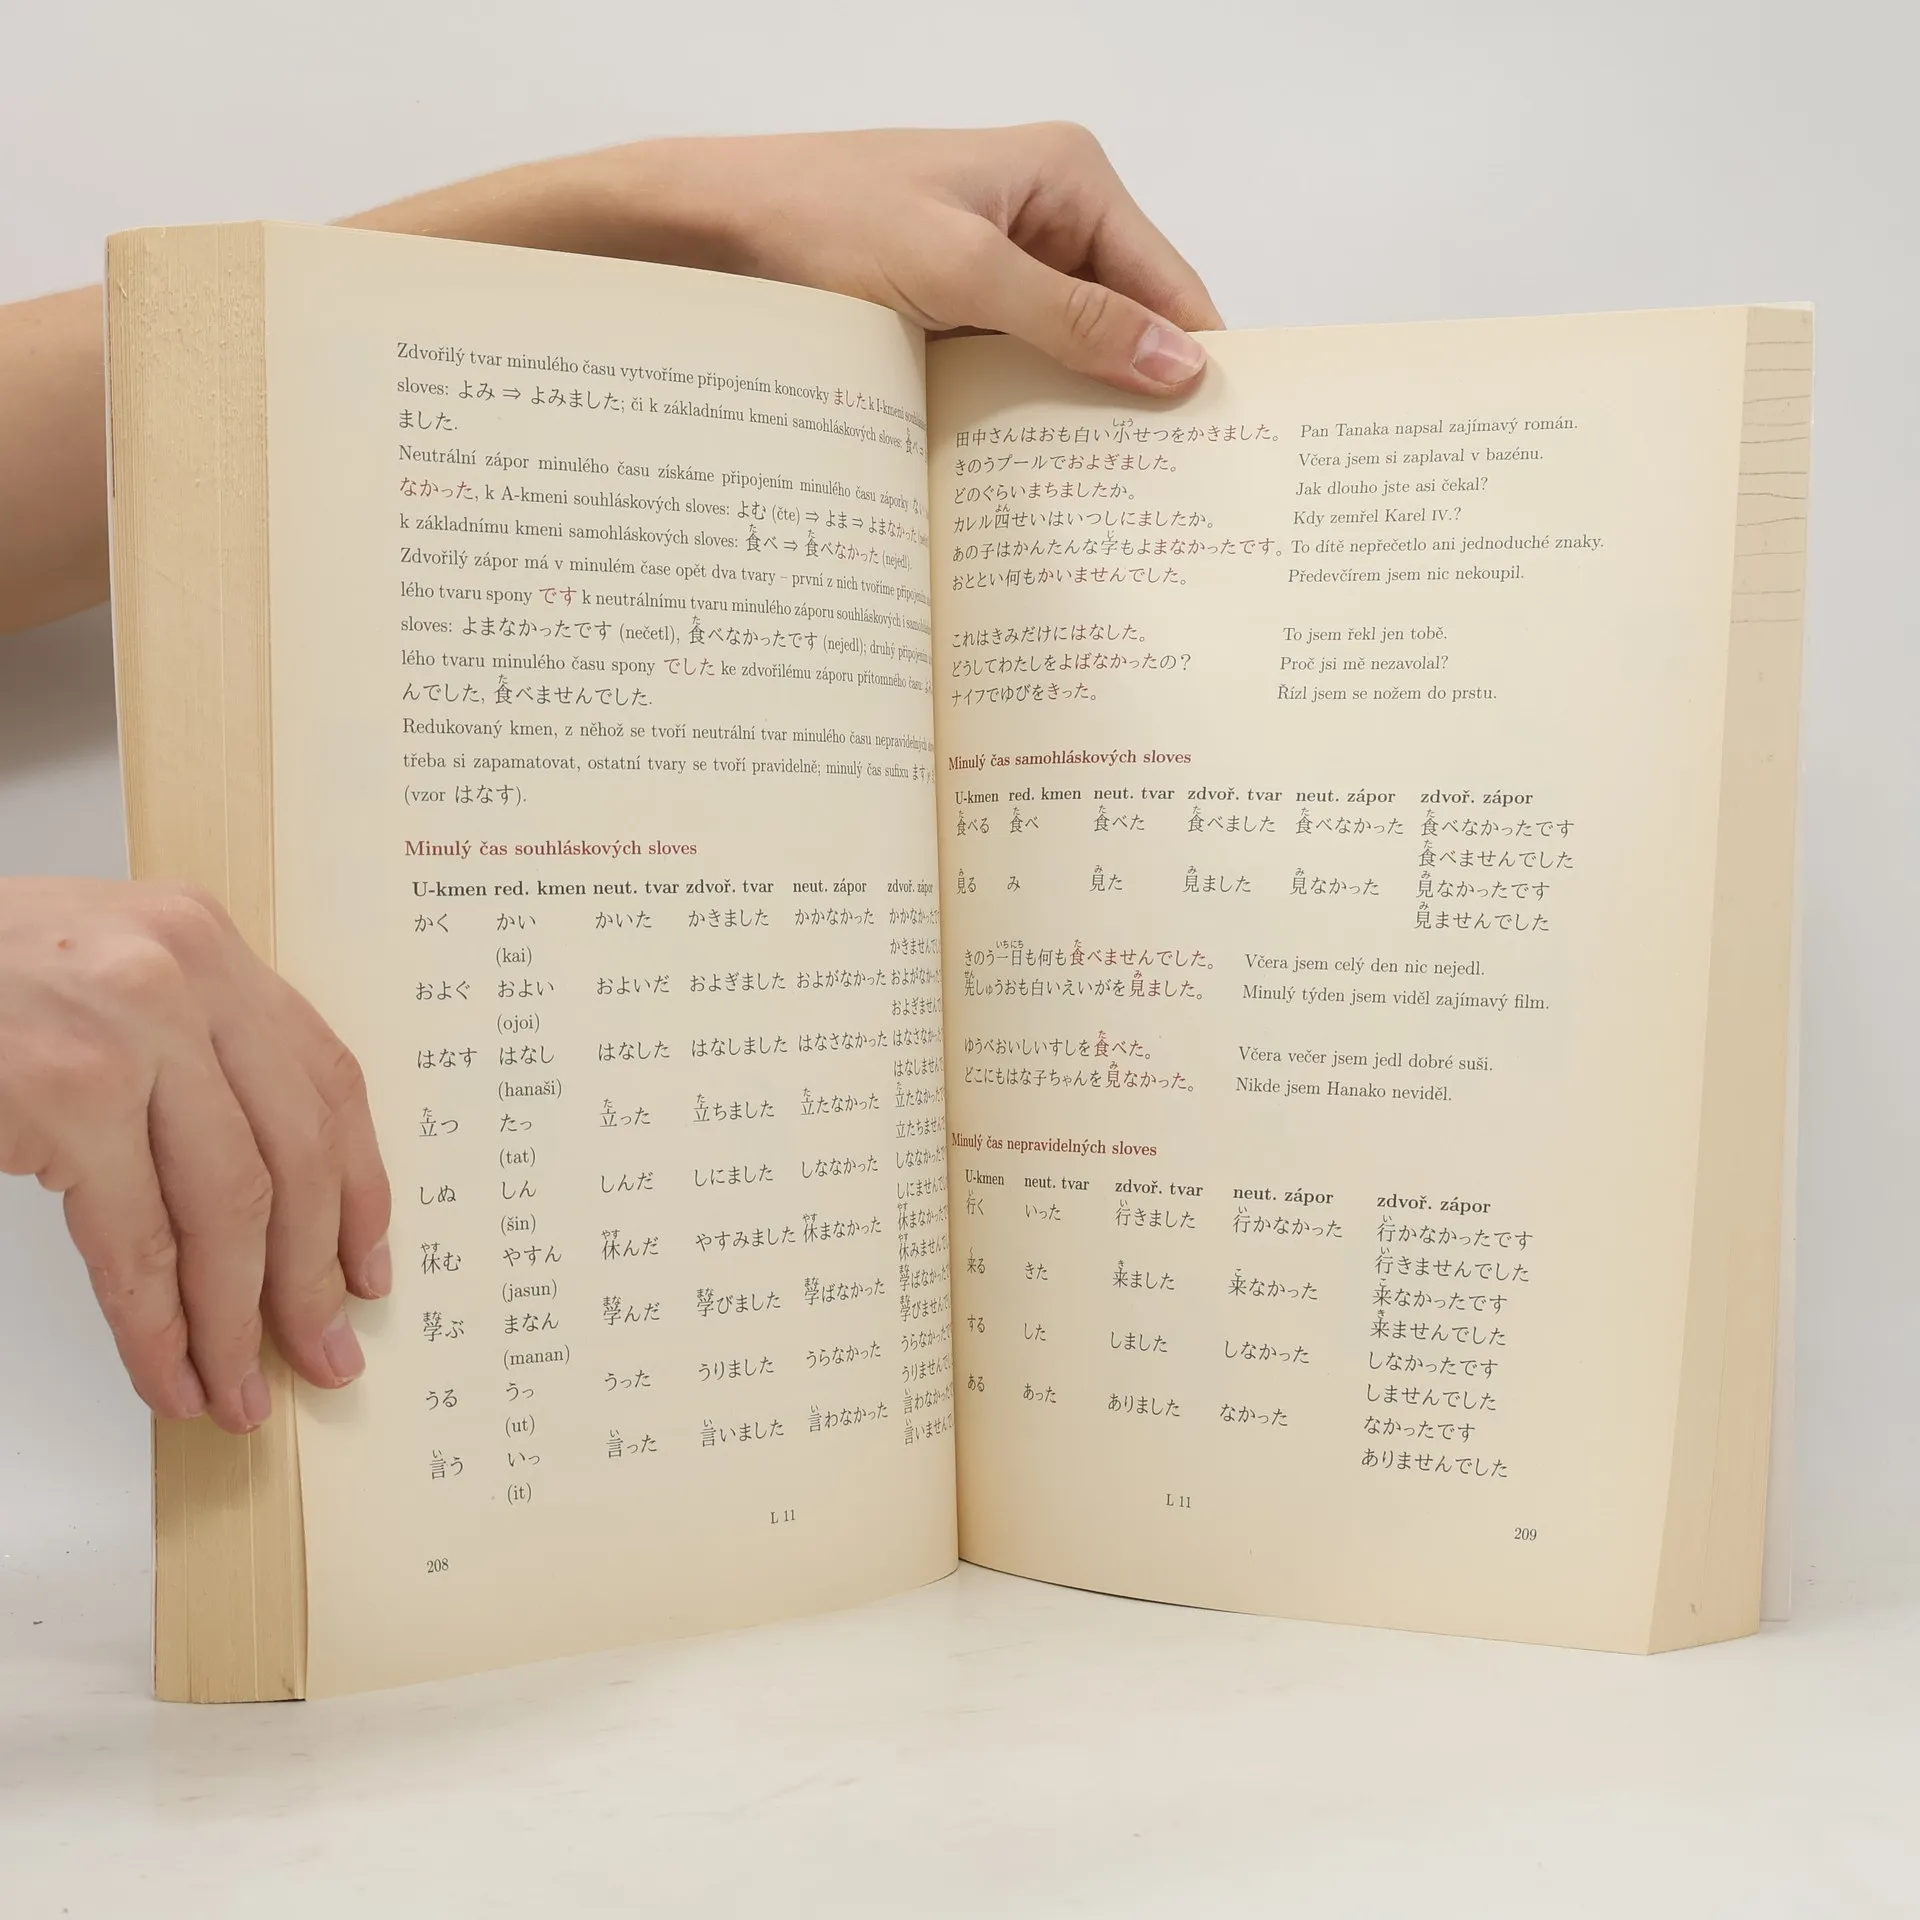 Zdvořilý tvar minulého času vytvoříme připojením koncovky ました k I-kmeni
sloves: よみ ⇒ よみました; či k základnímu kmeni samohláskových sloves: 食べ ⇒
ました.
Neutrální zápor minulého času získáme připojením minulého času záporky
なかった, k A-kmeni souhláskových sloves: よむ (čte) ⇒ よま ⇒ よまなかった
k základnímu kmeni samohláskových sloves: 食べ ⇒ 食べなかった (nejedl).
Zdvořilý zápor má v minulém čase opět dva tvary – první z nich tvoříme připojením
lého tvaru spony です k neutrálnímu tvaru minulého záporu souhláskových i
sloves: よまなかったです (nečetl), 食べなかったです (nejedl); druhý připojením
lého tvaru minulého času spony でした ke zdvořilému záporu přítomného času:
んでした, 食べませんでした.
Redukovaný kmen, z něhož se tvoří neutrální tvar minulého času nepravidelných
třeba si zapamatovat, ostatní tvary se tvoří pravidelně; minulý čas sufixu ます
(vzor はなす).
Minulý čas souhláskových sloves
U-kmen red. kmen neut. tvar zdvoř. tvar neut. zápor zdvoř. zápor
かく かい かいた かきました かかなかった
(kai)
およぐ およい およいだ およぎました およがなかった
(ojoi)
はなす はなし はなした はなしました はなさなかった
(hanaši)
立つ たっ 立った 立ちました 立たなかった
(tat)
しぬ しん しんだ しにました しななかった
(šin)
休む やすん 休んだ やすみました 休まなかった
(jasun)
學ぶ まなん 學んだ 學びました 學ばなかった
(manan)
うる うっ うった うりました うらなかった
(ut)
言う いっ 言った 言いました 言わなかった
(it)
L 11
208
田中さんはおも白い小せつをかきました。 Pan Tanaka napsal zajímavý román.
きのうプールでおよぎました。 Včera jsem si zaplaval v bazénu.
どのぐらいまちましたか。 Jak dlouho jste asi čekal?
カレル四せいはいつしにましたか。 Kdy zemřel Karel IV.?
あの子はかんたんな字もよまなかったです。 To dítě nepřečetlo ani jednoduché znaky.
おととい何もかいませんでした。 Předevčírem jsem nic nekoupil.
これはきみだけにはなした。 To jsem řekl jen tobě.
どうしてわたしをよばなかったの？ Proč jsi mě nezavolal?
ナイフでゆびをきった。 Řízl jsem se nožem do prstu.
Minulý čas samohláskových sloves
U-kmen red. kmen neut. tvar zdvoř. tvar neut. zápor zdvoř. zápor
食べる 食べ 食べた 食べました 食べなかった 食べなかったです
食べませんでした
見る み 見た 見ました 見なかった 見なかったです
見ませんでした
きのう一日も何も食べませんでした。 Včera jsem celý den nic nejedl.
先しゅうおも白いえいがを見ました。 Minulý týden jsem viděl zajímavý film.
ゆうべおいしいすしを食べた。 Včera večer jsem jedl dobré suši.
どこにもはな子ちゃんを見なかった。 Nikde jsem Hanako neviděl.
Minulý čas nepravidelných sloves
U-kmen neut. tvar zdvoř. tvar neut. zápor zdvoř. zápor
行く いった 行きました 行かなかった 行かなかったです
行きませんでした
来る きた 来ました 来なかった 来なかったです
来ませんでした
する した しました しなかった しなかったです
しませんでした
ある あった ありました なかった なかったです
ありませんでした
L 11
209